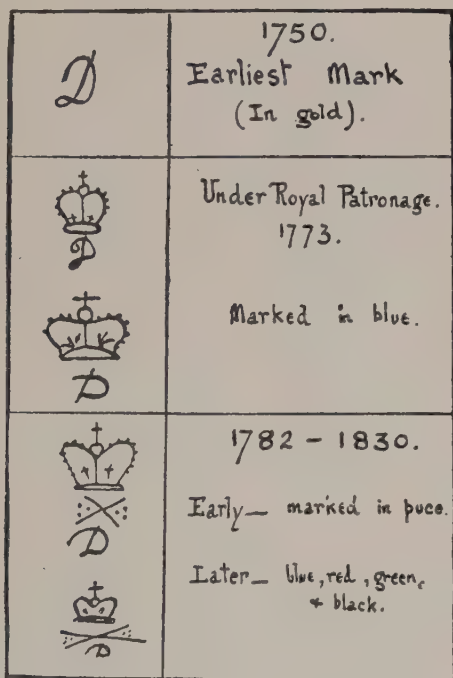 D
1750.
Earliest Mark
(In gold).
D
Under Royal Patronage.
1773.
D
Marked in blue.
D
1782 - 1830.
Early— marked in puce.
D
Later— blue, red, green,
+ black.